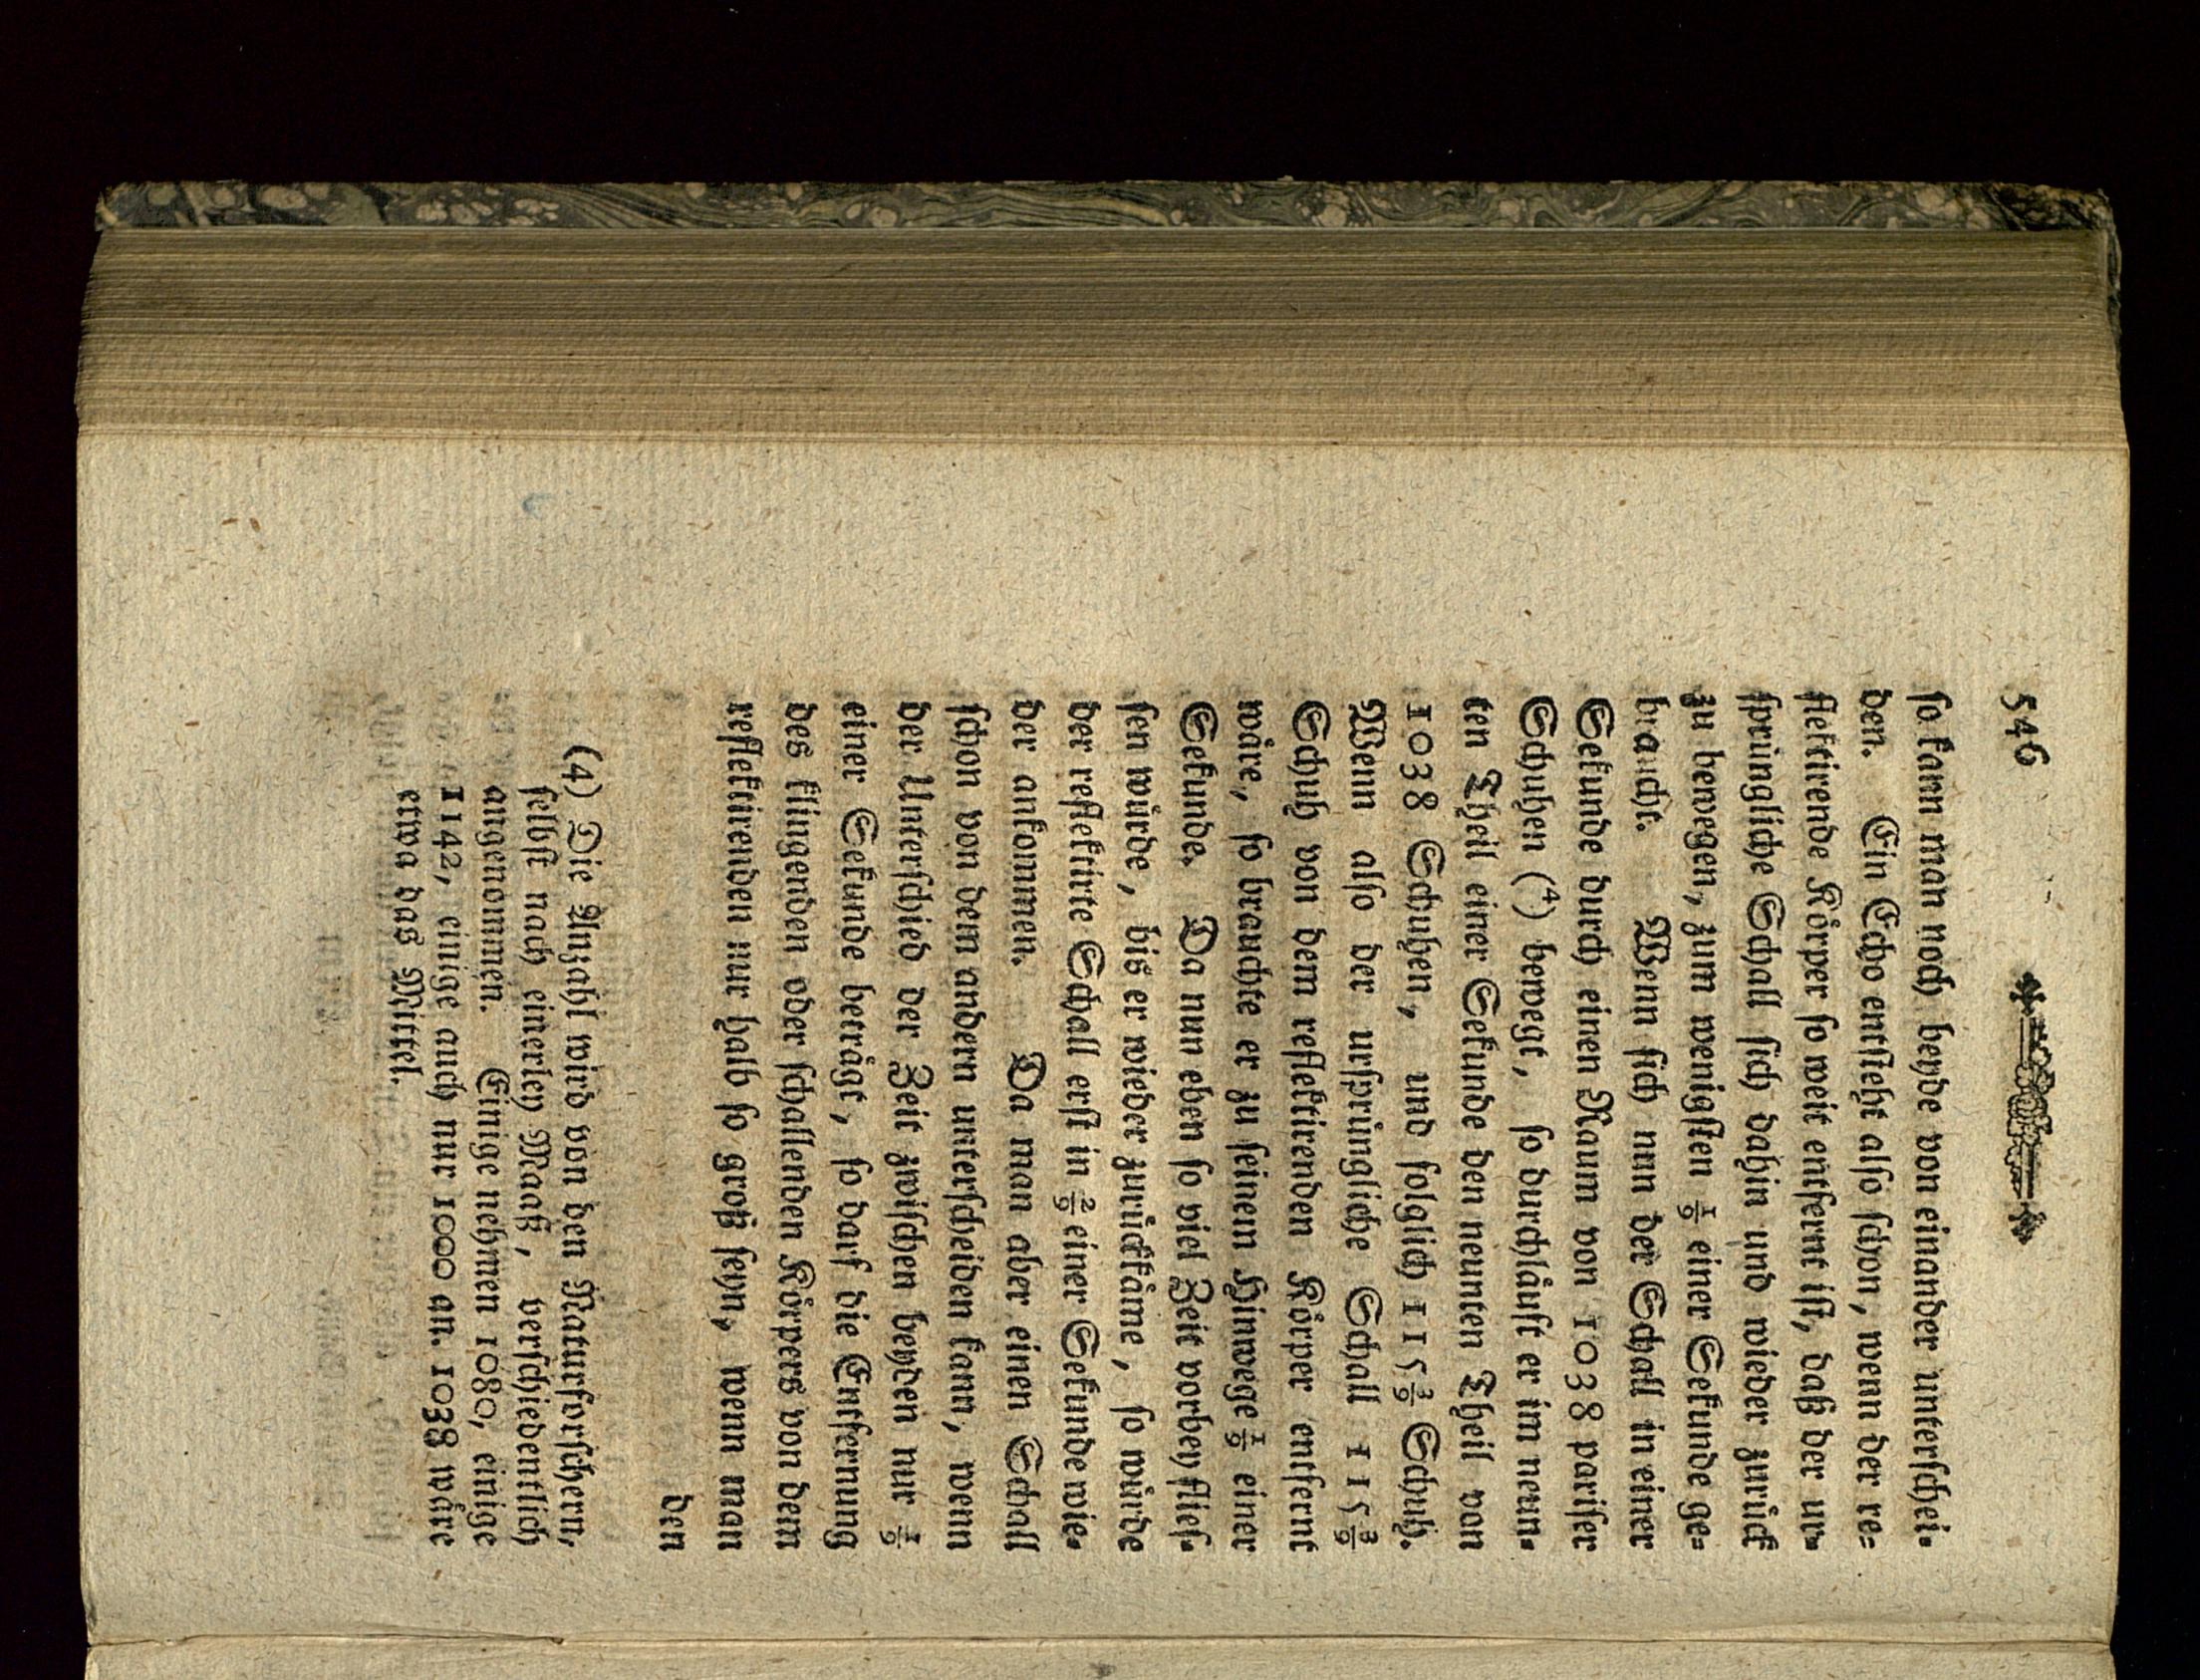 546
ſo kann man noch beyde von einander unterſchei-
den. Ein Echo entſteht alſo ſchon, wenn der re-
flektirende Körper ſo weit entfernt iſt, daß der ur-
ſprüngliche Schall ſich dahin und wieder zurück
zu bewegen, zum wenigſten 1/9 einer Sekunde ge-
braucht. Wenn ſich nun der Schall in einer
Sekunde durch einen Raum von 1038 pariſer
Schuhen (4) bewegt, ſo durchläuft er im neun-
ten Theil einer Sekunde den neunten Theil von
1038 Schuhen, und folglich 115 3/9 Schuh.
Wenn alſo der urſprüngliche Schall 115 3/9
Schuh von dem reflektirenden Körper entfernt
wäre, ſo brauchte er zu ſeinem Hinwege 1/9 einer
Sekunde. Da nun eben ſo viel Zeit vorbeyflieſ-
ſen würde, bis er wieder zurückkäme, ſo würde
der reflektirte Schall erſt in 2/9 einer Sekunde wie-
der ankommen. Da man aber einen Schall
ſchon von dem andern unterſcheiden kann, wenn
der Unterſchied der Zeit zwiſchen beyden nur 1/9
einer Sekunde beträgt, ſo darf die Entfernung
des klingenden oder ſchallenden Körpers von dem
reflektirenden nur halb ſo groß ſeyn, wenn man
den
(4) Die Anzahl wird von den Naturforſchern,
ſelbſt nach einerley Maaß, verſchiedentlich
angenommen. Einige nehmen 1080, einige
1142, einige auch nur 1000 an. 1038 wäre
etwa das Mittel.